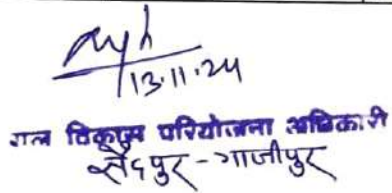 13.11.24
बाल विकास परियोजना अधिकारी
सैदपुर - गाजीपुर